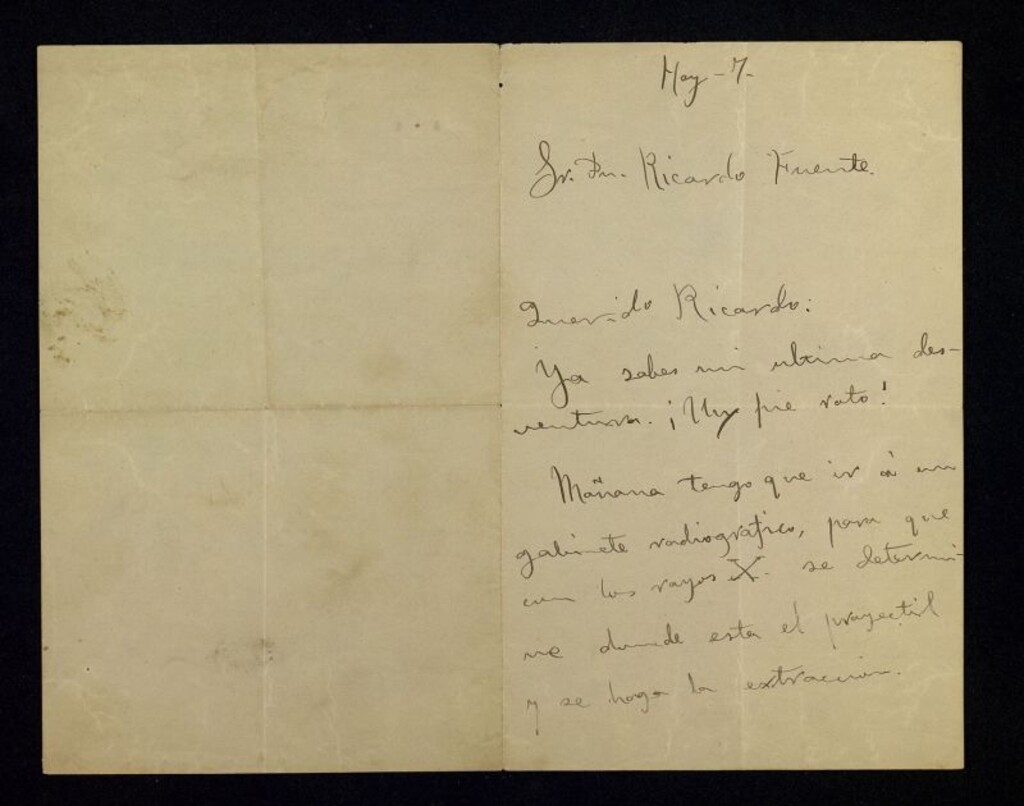 Hoy - 7.
Sr. Dn. Ricardo Fuente.
Querido Ricardo:
Ya sabes mi ultima des-
ventura. ¡Un pie roto!
Mañana tengo que ir á un
gabinete radiografico, para que
con los rayos X. se determi-
ne donde esta el proyectil
y se haga la extraccion.